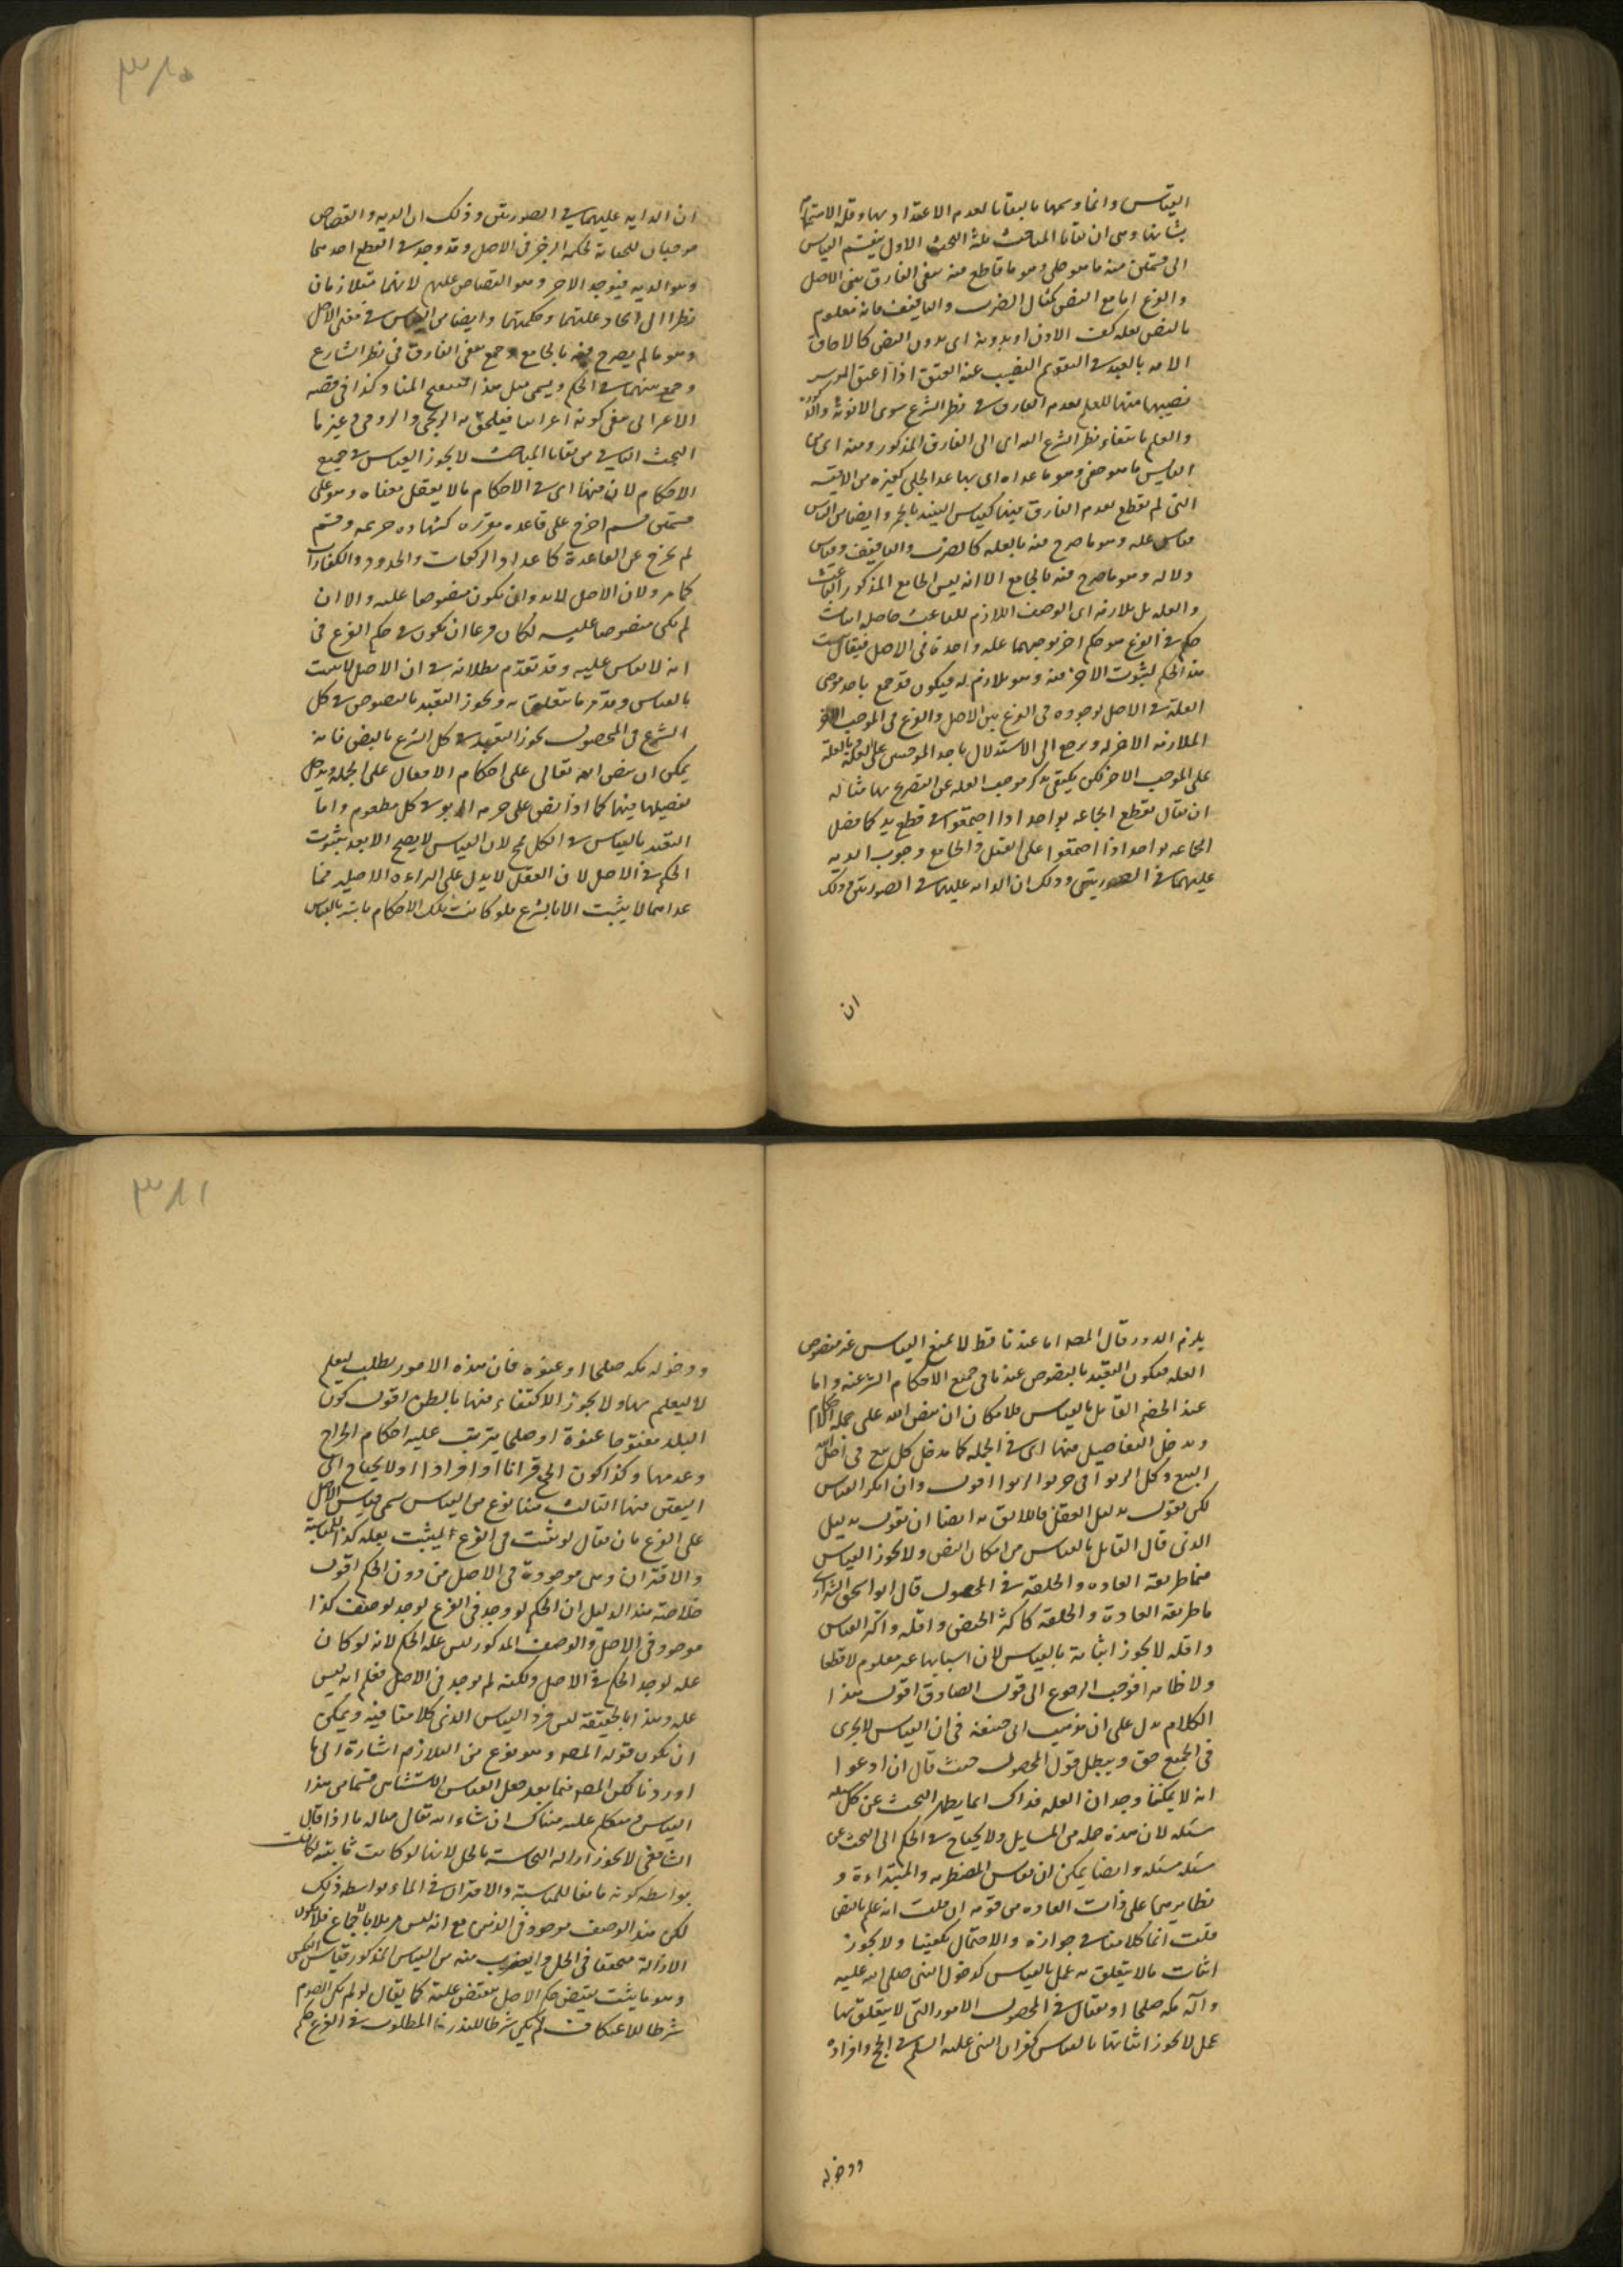 القياس وانما وسمها بالبقايا لعدم الاعتداد بها وقلة الاهتمام
بشانها وهى ان بقايا المباحث ثلثة البحث الاول ينقسم القياس
الى قسمين منه ما هو جلى وهو ما قاطع فيه بنفى الفارق بين الاصل
والفرع اما مع النص كمثال الضرب والتافيف فانه معلوم
بالنص بعلة كف الاذى او بدونه اى بدون النص كالحاق
الامه بالعبد فى التقويم النصيب عند العتق اذا اعتق الموسر
نصيبها منها للعلم بعدم الفارق فى نظر الشرع سوى الانوثة
والعلم بانتفاء نظر الشرع الى الفارق المذكور ومنه اى من
القياس ما هو خفى وهو ما عداه اى ما عدا الجلى كغيره من الاقيسة
التى لم يقطع بعدم الفارق فيها كقياس النبيذ بالخمر وايضا من القياس
قياس علة وهو ما صرح فيه بالعلة كالضرب والتافيف وقياس
دلالة وهو ما صرح فيه بالجامع الا انه ليس الجامع المذكور الباعث
والعلة بل ملازمه اى الوصف اللازم للباعث حاصله اثبات
حكم فى الفرع هو حكم اخر يوجبهما علة واحدة فى الاصل فيقال يثبت
هذا الحكم لثبوت الاخر فيه وهو ملازم له فيكون قد جمع باحد موجبى
العلة فى الاصل لوجوده فى الفرع بين الاصل والفرع فى الموجب الاخر
لملازمة الاخر له ويرجع الى الاستدلال باحد الموجبين على العلة وبالعلة
على الموجب الاخر لكن يكتفى بذكر موجب العلة عن التصريح بها مثاله
ان يقال تقطع الجماعة بواحد اذا اجتمعوا فى قطع يد كما يقتل
الجماعة بواحد اذا اجتمعوا على القتل والجامع وجوب الدية
عليهما فى الصورتين وذلك ان الدية عليهما فى الصورتين وذلك
ان
ان الدية عليهما فى الصورتين وذلك ان الدية والقصاص
موجبان للجناية لحكمة الزجر فى الاصل وقد وجد فى القطع احدهما
وهو الدية فيوجد الاخر وهو القصاص عليهم لانهما متلازمان
نظرا الى اتحاد علتهما وحكمتهما وايضا من القياس فى معنى الاصل
وهو ما لم يصرح فيه بالجامع وجمع بنفى الفارق فى نظر الشارع
وجمع بينهما فى الحكم ويسمى مثل هذا تنقيح المناط وكذا فى قصة
الاعرابى نفى كونه اعرابيا فيلحق به الزنجى والرومى وغيرهما
البحث الثانى من بقايا المباحث لا يجوز القياس فى جميع
الاحكام لان منها اى فى الاحكام ما لا يعقل معناه وهو على
قسمين قسم اخرج على قاعدة مقررة كشهادة خزيمة وقسم
لم يخرج عن القاعدة كاعداد الركعات والحدود والكفارات
كما مر ولان الاصل لا بد وان يكون منصوصا عليه والا ان
لم يكن منصوصا عليه لكان فرعا ان يكون فى حكم الفرع فى
انه لا يقاس عليه وقد تقدم بطلانه فى ان الاصل لا يثبت
بالقياس وقد مر ما يتعلق به ويجوز التعبد بالنصوص فى كل
الشرع فى المحصول يجوز التعبد فى كل الشرع بالنص فانه
يمكن ان ينص الله تعالى على احكام الافعال على الجملة ويدخل
تفصيلها فيها كما اذا نص على حرمة الربوا فى كل مطعوم واما
التعبد بالقياس فى الكل فمح لان القياس لا يصح الا بعد ثبوت
الحكم فى الاصل لان العقل لا يدل على البراءة الاصلية فما
عداهما لا يثبت الا بالشرع فلو كانت تلك الاحكام ثابتة بالقياس
يلزم الدور قال المصه اما عندنا فظ لامتناع القياس غير منصوص
العلة فيكون التعبد بالنصوص عندنا فى جميع الاحكام الشرعية واما
عند الخصم القائل بالقياس فلامكان ان ينص الله على جملة الاحكام
ويدخل التفاصيل فيها اى فى الجملة كما يدخل كل بيع فى احل الله
البيع وكل الربوا فى حرموا الربوا اقول وان انكر القياس
لكن يقول بدليل العقل فاللايق به ايضا ان يقول بدليل
الذى قال القائل بالقياس من امكان النص ولا يجوز القياس
فيما طريقه العادة والخلقة فى المحصول قال ابو اسحق الشيرازى
ما طريقه العادة والخلقة كاكثر الحيض واقله واكثر النفاس
واقله لا يجوز اثباته بالقياس لان اسبابها غير معلوم لا قطعا
ولا ظاهرا فوجب الرجوع الى قول الصادق اقول هذا
الكلام يدل على ان مذهب ابى حنيفة فى ان القياس لا يجرى
فى الجميع حق ويبطل قول المحصول حيث قال ان ادعوا
انه لا يمكننا وجدان العلة فذاك انما يظهر البحث عن كل مسئله
مسئله لان هذه جملة من المسايل ولا يحتاج فى الحكم الى البحث عن
مسئله مسئله وايضا يمكن ان يقاس المضطربه والمبتداءة و
نظايرهما على ذات العادة من قومه ان قلت انه علم بالنص
قلت انما كلامنا فى جوازه والاحتمال يكفينا ولا يجوز
اثبات ما لا يتعلق به عمل بالقياس كدخول النبى صلى الله عليه
وآله مكه صلحا او يقال فى المحصول الامور التى لا يتعلق بها
عمل لا يجوز اثباتها بالقياس كقران النبى عليه السلم فى الحج وافراده
ودخوله
ودخوله مكه صلحا او عنوة فان هذه الامور يطلب ليعلم
لا ليعلم بها ولا يجوز الاكتفاء فيها بالظن اقول كون
البلد مفتوحا عنوة او صلحا يترتب عليه احكام الخراج
وعدمها وكذا كون الحج قرانا او افرادا او لا يحتاج الى
اليقين فيها الثالث هنا نوع من القياس سمى قياس الاصل
على الفرع بان يقال لو ثبت فى الفرع لثبت بعلة كذا للمناسبة
والاقتران وهى موجودة فى الاصل من دون الحكم اقول
خلاصة هذا الدليل ان الحكم لو وجد فى الفرع لوجد لوصف كذا
موجود فى الاصل والوصف المذكور ليس علة الحكم لانه لو كان
علة لوجد الحكم فى الاصل ولكنه لم يوجد فى الاصل فعلم انه ليس
علة وهذا بالحقيقة ليس فرد القياس الذى كلامنا فيه ويمكن
ان يكون قوله المصه وهو نوع من التلازم اشارة الى ما
اوردنا لكن المصه فيما بعد جعل القياس الاستثنائى قسما من هذا
القياس ونتكلم عليه هناك ان شاء الله تعالى مثاله ما اذا قال
الشافعى لا يجوز ازالة النجاسة بالخل لانها لو كانت ثابتة لكانت
بواسطة كونه مايعا للمناسبة والاقتران فى الماء بواسطة ذلك
لكن هذا الوصف موجود فى الدهن مع انه ليس مزيلا بالاجماع فلا يكون
الازالة متحققا فى الخل وايضا يقرب منه من القياس المذكور قياس العكس
وهو ما يثبت نقيض حكم الاصل بنقيض علته كما يقال لو لم يكن الصوم
شرطا للاعتكاف لم يكن شرطا للنذر فالمطلوب فى الفرع حكم
٣٨٠
٣٨١